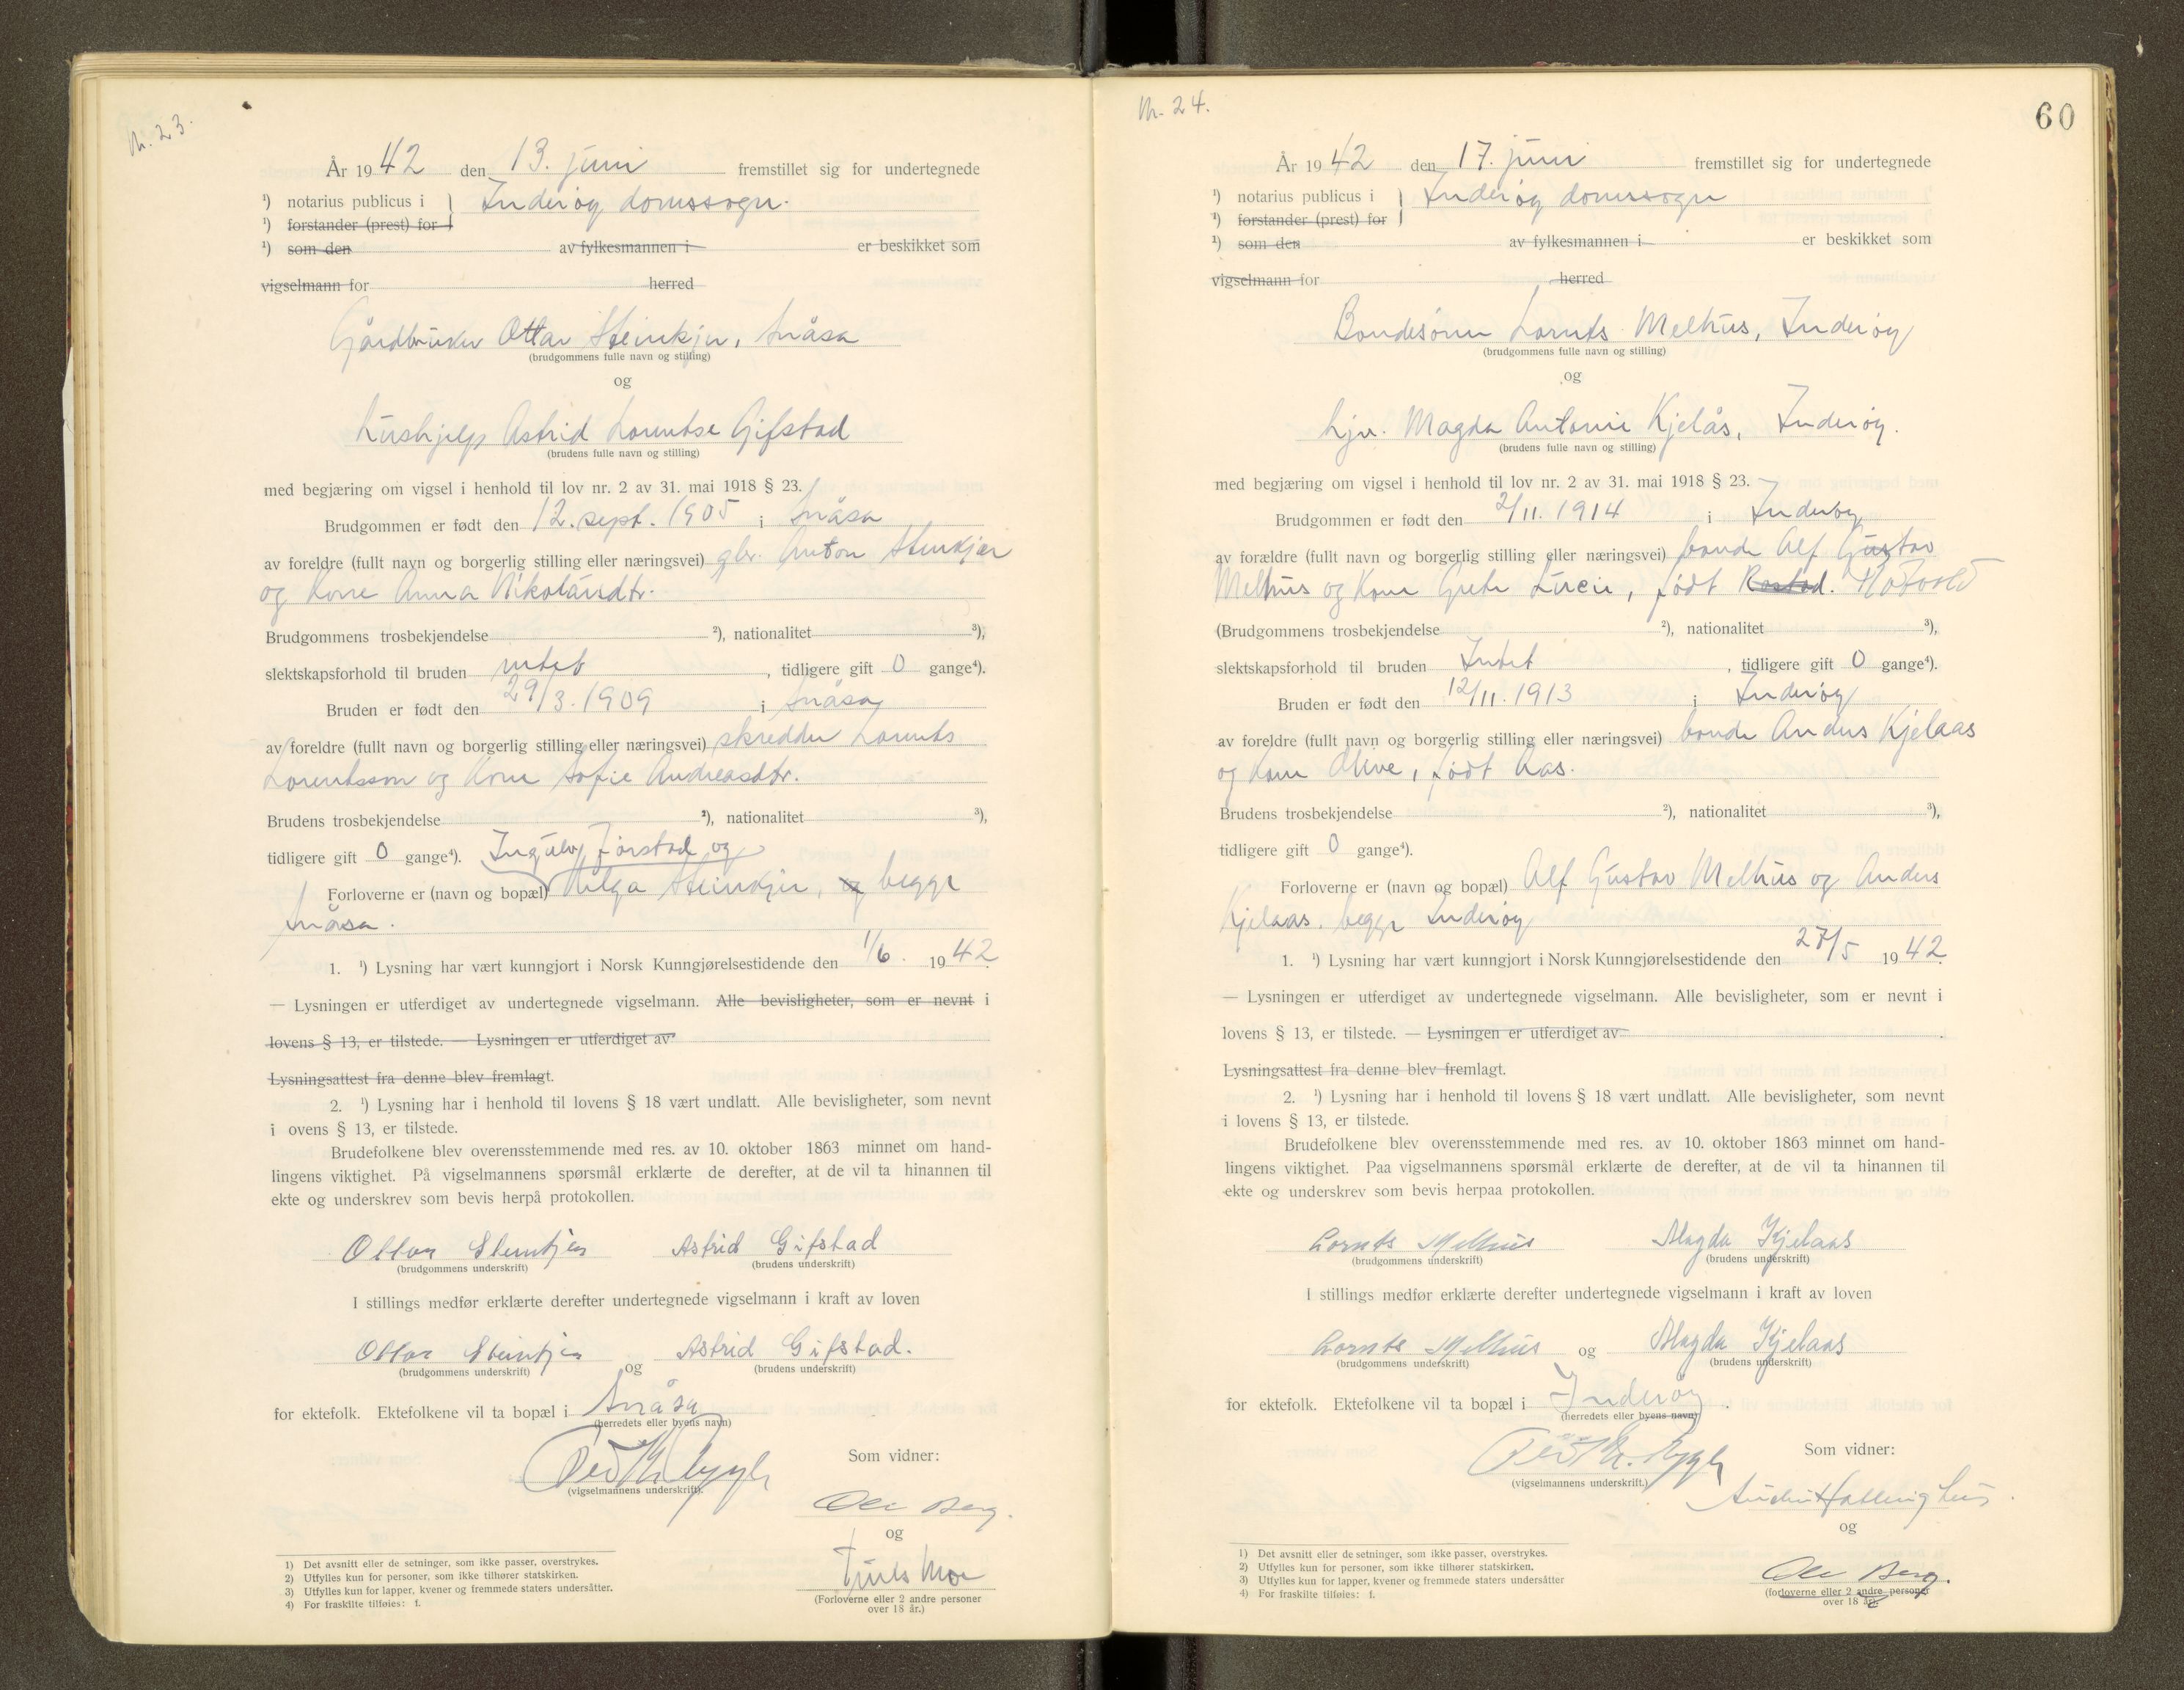 Nr. 23.
År 1942 den 13. juni fremstillet sig for undertegnede
¹) notarius publicus i } Inderøy domssogn.
¹) forstander (prest) for
¹) som den av fylkesmannen i er beskikket som
vigselmann for herred
Gårdbruker Ottar Steinkjer, Snåsa
(brudgommens fulle navn og stilling)
og
Hushjelp Astrid Lorentse Gifstad
(brudens fulle navn og stilling)
med begjæring om vigsel i henhold til lov nr. 2 av 31. mai 1918 § 23.
Brudgommen er født den 12. sept. 1905 i Snåsa
av foreldre (fullt navn og borgerlig stilling eller næringsvei) gbr. Anton Steinkjer
og Kone Anna Nikolaisdtr.
Brudgommens trosbekjendelse ²), nationalitet ³),
slektskapsforhold til bruden intet, tidligere gift 0 gange⁴).
Bruden er født den 29/3. 1909 i Snåsa
av foreldre (fullt navn og borgerlig stilling eller næringsvei) skredder Lorents
Lorentsson og Kone Sofie Andreasdtr.
Brudens trosbekjendelse ²), nationalitet ³),
tidligere gift 0 gange⁴). Ingulv Jørstad og
Forloverne er (navn og bopæl) Helga Steinkjer, og begge
Snåsa.
1. ¹) Lysning har vært kunngjort i Norsk Kunngjørelsestidende den 1/6. 1942.
— Lysningen er utferdiget av undertegnede vigselmann. Alle bevisligheter, som er nevnt i
lovens § 13, er tilstede. — Lysningen er utferdiget av
Lysningsattest fra denne blev fremlagt.
2. ¹) Lysning har i henhold til lovens § 18 vært undlatt. Alle bevisligheter, som nevnt
i ovens § 13, er tilstede.
Brudefolkene blev overensstemmende med res. av 10. oktober 1863 minnet om hand-
lingens viktighet. På vigselmannens spørsmål erklærte de derefter, at de vil ta hinannen til
ekte og underskrev som bevis herpå protokollen.
Ottar Steinkjer Astrid Gifstad
(brudgommens underskrift) (brudens underskrift)
I stillings medfør erklærte derefter undertegnede vigselmann i kraft av loven
Ottar Steinkjer og Astrid Gifstad.
(brudgommens underskrift) (brudens underskrift)
for ektefolk. Ektefolkene vil ta bopæl i Snåsa
(herredets eller byens navn)
Som vidner:
(vigselmannens underskrift).
Ole Berg.
og
Moe
(Forloverne eller 2 andre personer
over 18 år.)
1) Det avsnitt eller de setninger, som ikke passer, overstrykes.
2) Utfylles kun for personer, som ikke tilhører statskirken.
3) Utfylles kun for lapper, kvener og fremmede staters undersåtter.
4) For fraskilte tilføies: f.
Nr. 24.
60
År 1942 den 17. juni fremstillet sig for undertegnede
¹) notarius publicus i } Inderøy domssogn
¹) forstander (prest) for
¹) som den av fylkesmannen i er beskikket som
vigselmann for herred
Bondesønn Lornts Melhus, Inderøy
(brudgommens fulle navn og stilling)
og
hjv. Magda Antonie Kjelås, Inderøy.
(brudens fulle navn og stilling)
med begjæring om vigsel i henhold til lov nr. 2 av 31. mai 1918 § 23.
Brudgommen er født den 2/11. 1914 i Inderøy
av forældre (fullt navn og borgerlig stilling eller næringsvei) bonde Alf Gustav
Melhus og Kone Grete Lucie, født Rostad.
(Brudgommens trosbekjendelse ²), nationalitet ³),
slektskapsforhold til bruden Intet, tidligere gift 0 gange⁴).
Bruden er født den 12/11. 1913 i Inderøy
av foreldre (fullt navn og borgerlig stilling eller næringsvei) bonde Anders Kjelaas
og Kone Olive, født Aas.
Brudens trosbekjendelse ²), nationalitet ³),
tidligere gift 0 gange⁴).
Forloverne er (navn og bopæl) Alf Gustav Melhus og Anders
Kjelaas, begge Inderøy
1. ¹) Lysning har vært kunngjort i Norsk Kunngjørelsestidende den 27/5 1942.
— Lysningen er utferdiget av undertegnede vigselmann. Alle bevisligheter, som er nevnt i
lovens § 13, er tilstede. — Lysningen er utferdiget av .
Lysningsattest fra denne blev fremlagt.
2. ¹) Lysning har i henhold til lovens § 18 vært undlatt. Alle bevisligheter, som nevnt
i lovens § 13, er tilstede.
Brudefolkene blev overensstemmende med res. av 10. oktober 1863 minnet om hand-
lingens viktighet. Paa vigselmannens spørsmål erklærte de derefter, at de vil ta hinannen til
ekte og underskrev som bevis herpaa protokollen.
Lornts Melhus Magda Kjelaas
(brudgommens underskrift) (brudens underskrift)
I stillings medfør erklærte derefter undertegnede vigselmann i kraft av loven
Lornts Melhus og Magda Kjelaas
(brudgommens underskrift) (brudens underskrift)
for ektefolk. Ektefolkene vil ta bopæl i Inderøy.
(herredets eller byens navn)
Som vidner:
(vigselmannens underskrift.)
og
Ole Berg.
(forloverne eller 2 andre personer
over 18 år).
1) Det avsnitt eller de setninger, som ikke passer, overstrykes.
2) Utfylles kun for personer, som ikke tilhører statskirken.
3) Utfylles kun for lapper, kvener og fremmede staters undersåtter
4) For fraskilte tilføies: f.